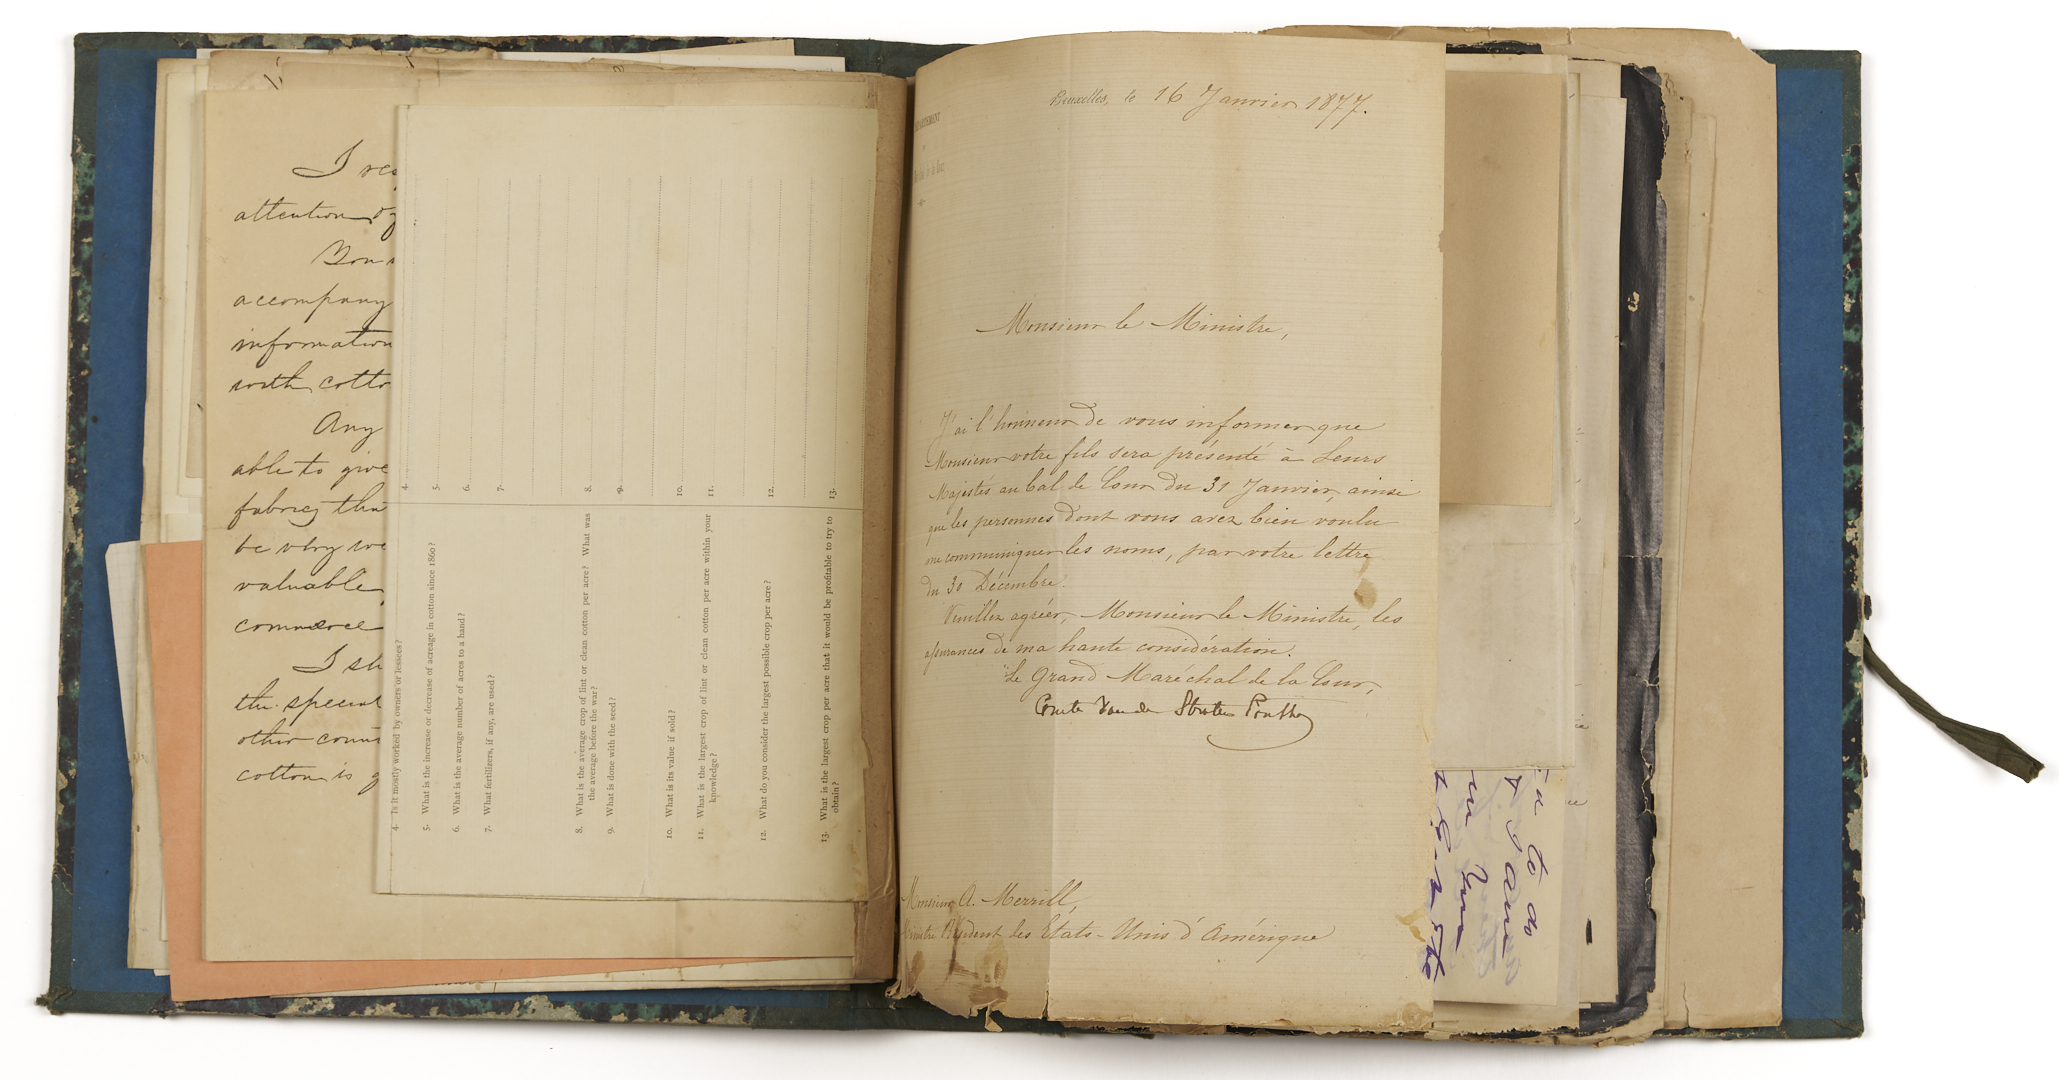 I res
attention of
You
accompany
information
with cotto
Any
able to give
fabrics tha
be very we
valuable
commerce
I sh
the special
other coun
cotton is g
4. Is it mostly worked by owners or lessees?
5. What is the increase or decrease of acreage in cotton since 1860?
6. What is the average number of acres to a hand?
7. What fertilizers, if any, are used?
8. What is the average crop of lint or clean cotton per acre? What was
the average before the war?
9. What is done with the seed?
10. What is its value if sold?
11. What is the largest crop of lint or clean cotton per acre within your
knowledge?
12. What do you consider the largest possible crop per acre?
13. What is the largest crop per acre that it would be profitable to try to
obtain?
4.
5.
6.
7.
8.
9.
10.
11.
12.
13.
Bruxelles, le 16 Janvier 1877.
Monsieur le Ministre,
J'ai l'honneur de vous informer que
Monsieur votre fils sera présenté à Leurs
Majestés au bal de Cour du 31 Janvier, ainsi
que les personnes dont vous avez bien voulu
me communiquer les noms, par votre lettre
du 30 Décembre.
Veuillez agréer, Monsieur le Ministre, les
assurances de ma haute considération.
Le Grand Maréchal de la Cour,
Comte Van der Straten Ponthoz
Monsieur A. Merrill,
Ministre Résident des Etats-Unis d'Amérique